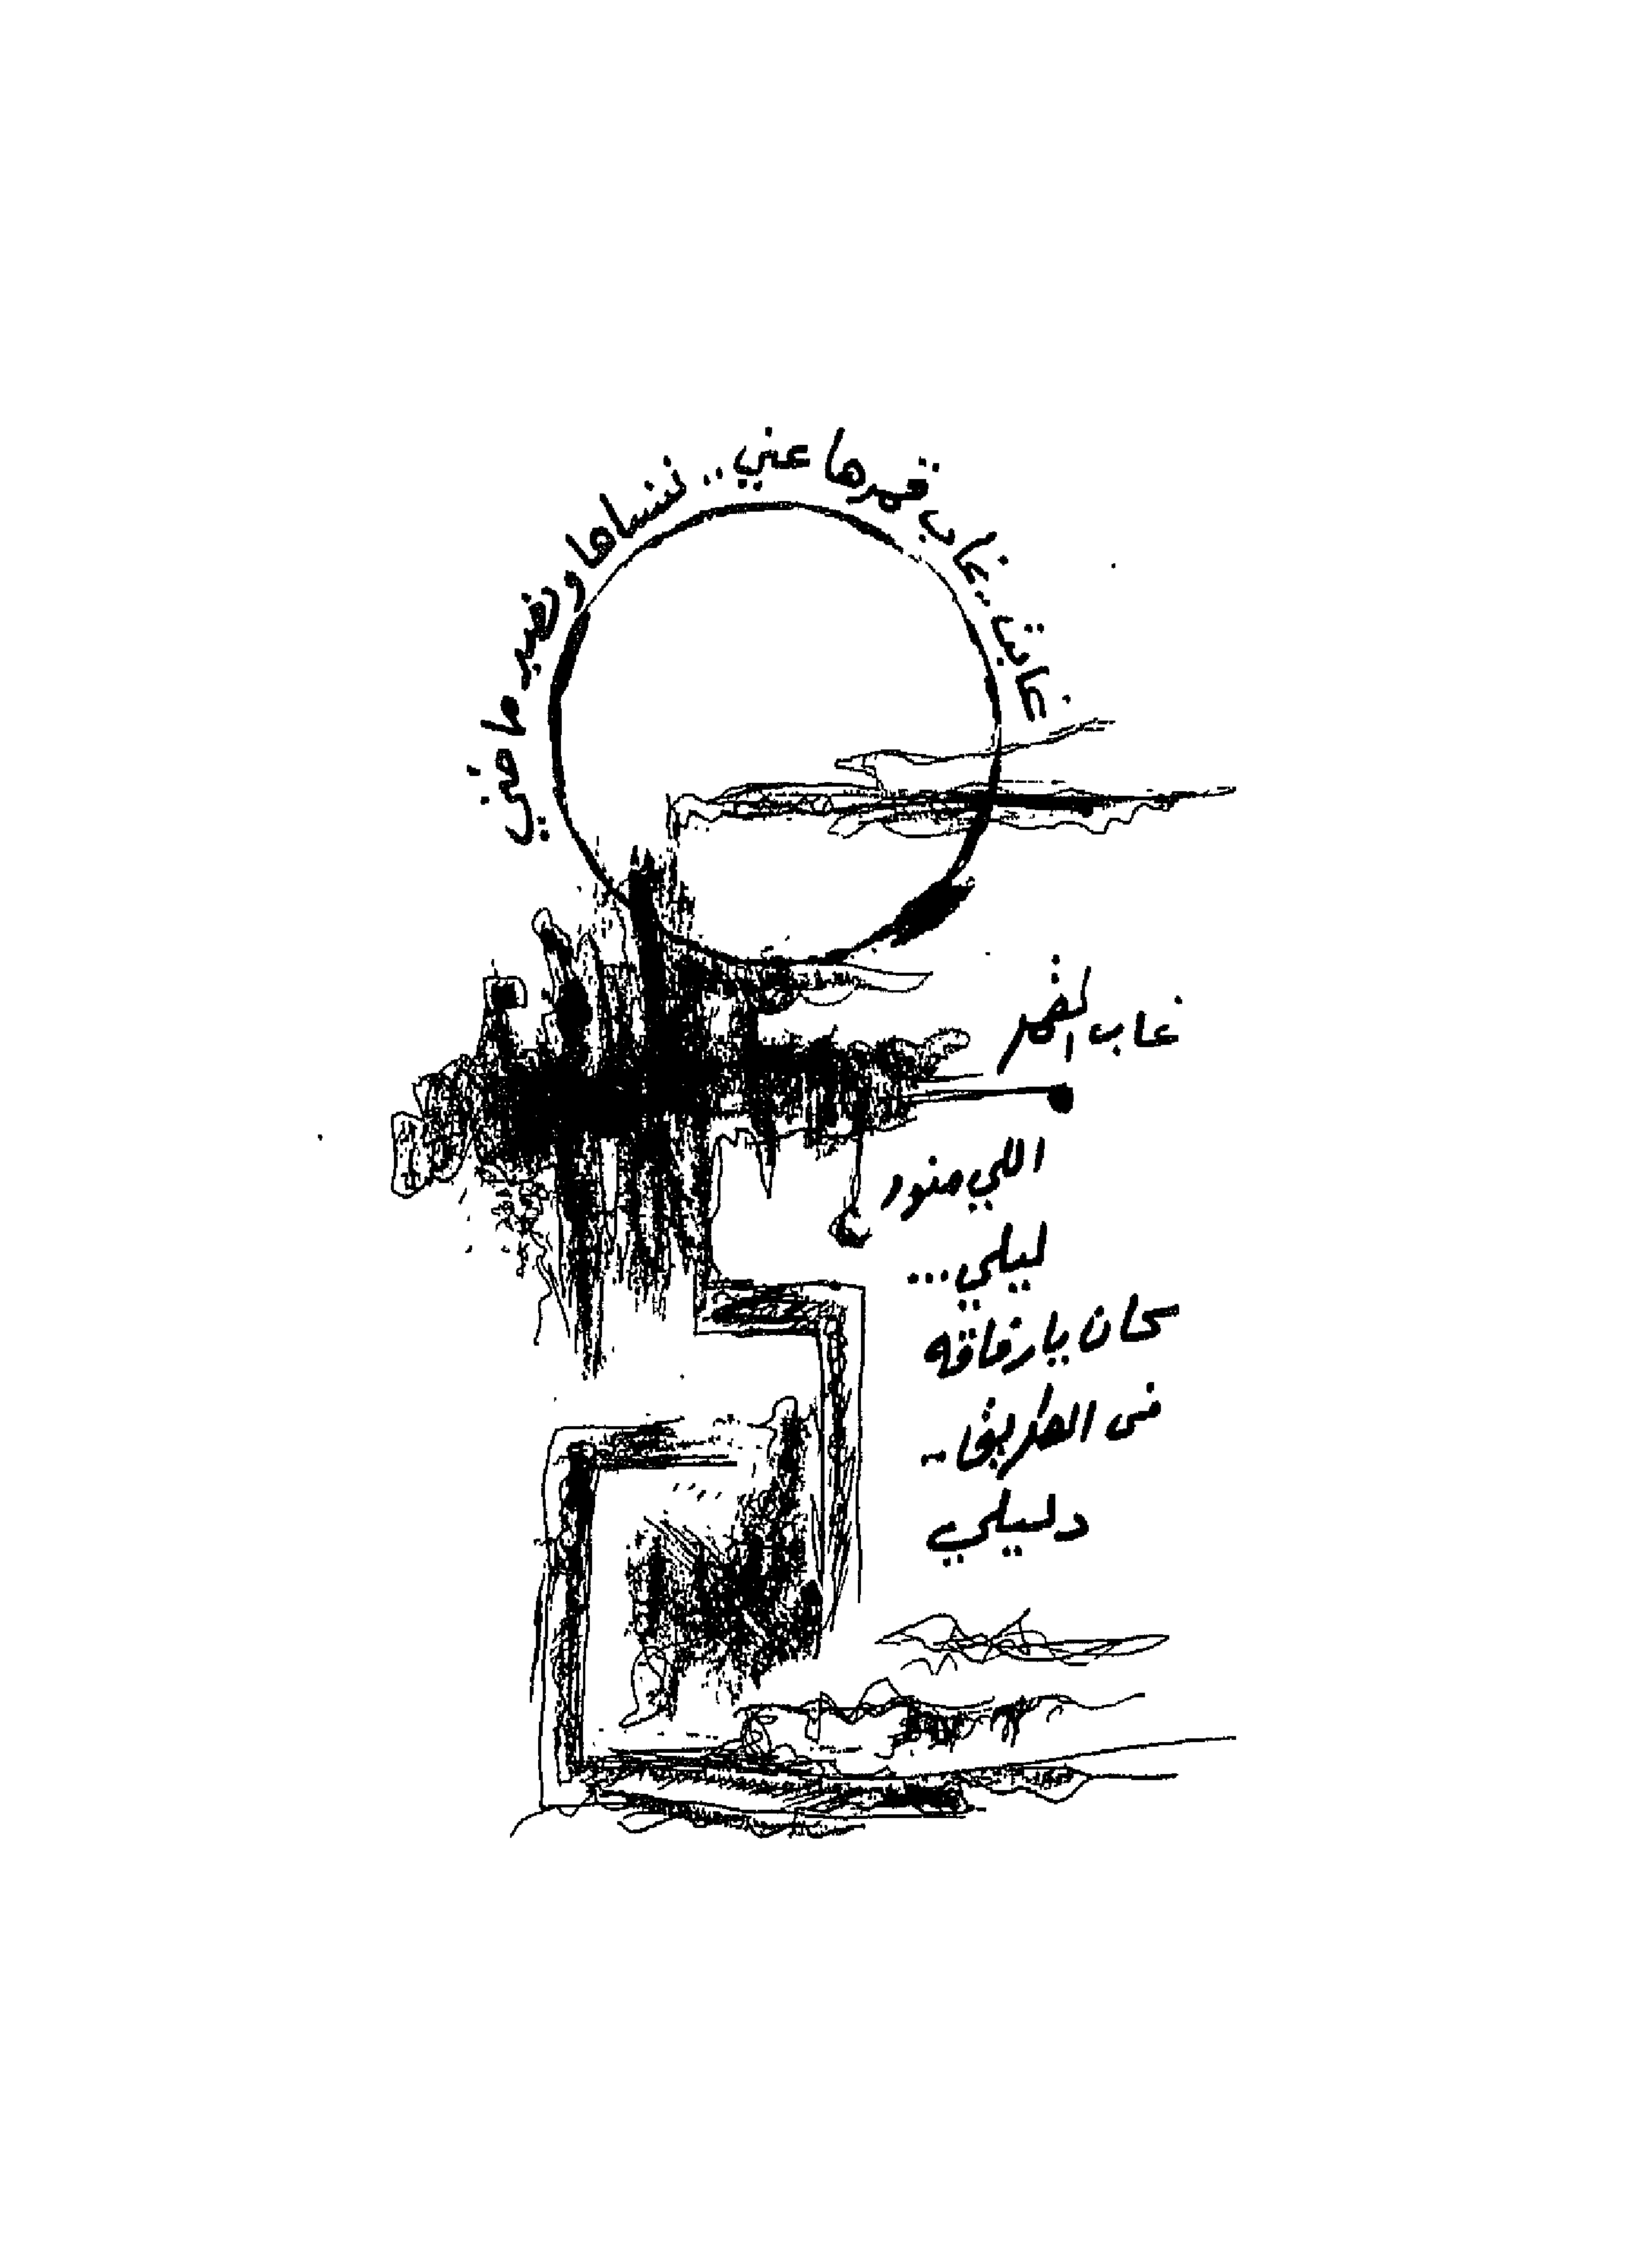 غابت.. غاب قمرها عني.. ننساها وتصير ماضي
غاب القمر
اللي منور
ليلي...
كان يا رفاقه
في الطريق..
دليلي